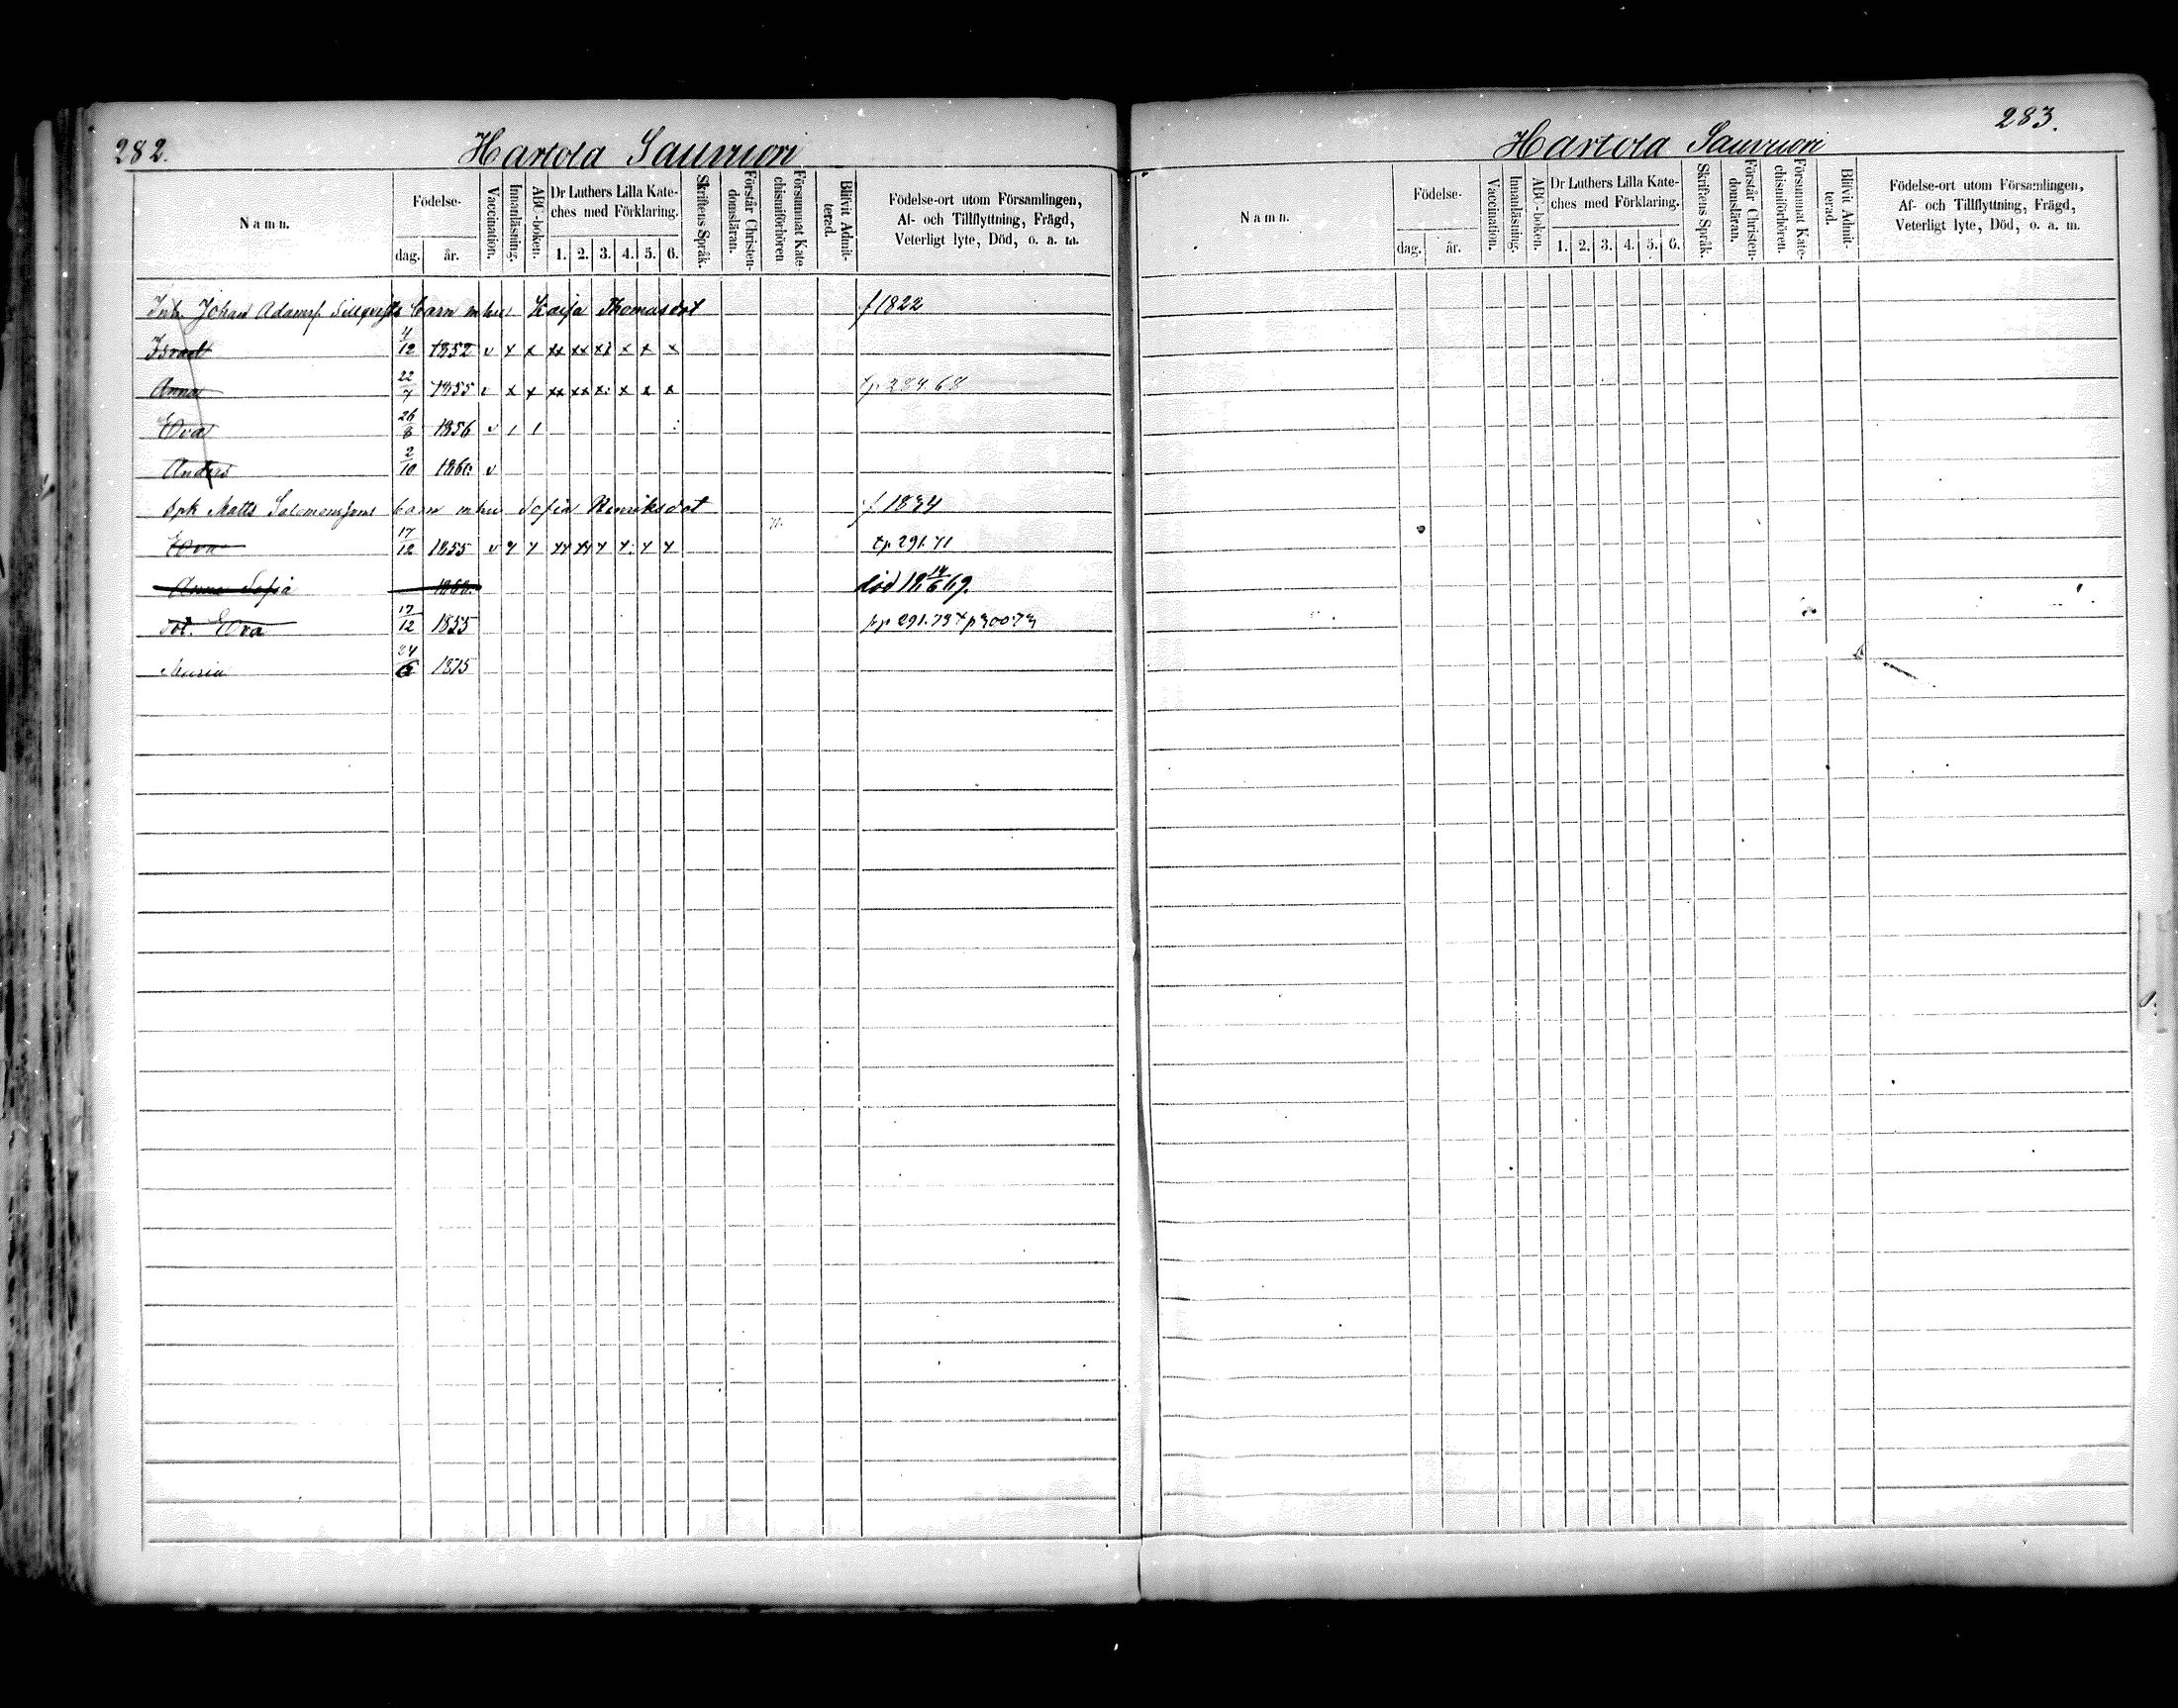 282.
Hartola Sauvuori
Namn.
Födelse-
dag.
år.
Vaccination.
Innanläsning.
ABC-boken.
Dr Luthers Lilla Kate-
ches med Förklaring.
1. 2. 3. 4. 5. 6.
Skriftens Språk.
Förstår Christen-
domsläran.
Försummat Kate
chismiförhören
Blifvit Admit-
terad.
Födelse-ort utom Församlingen,
Af- och Tillflyttning, Frägd,
Veterligt lyte, Död, o. a. m.
Inh. Johan Adamss. barn m hu Kaisa Thomasdot f 1822
Israel 4/12 1852 v x x xx xx x x x x
Anna 22/7 1855 v x x xx xx x: x x x tp 284.68
Eva 26/8 1856 v / /
Anders 2/10 1860 v
spk Matts Salomonssons barn m hu Sofia Henriksdot f 1834
Eva 17/12 1855 v x x xx xx x x x x tp 291.71
Anna Sofia 1860. död 18 14/6 69.
dot. Eva 17/12 1855 frp 291.73 tp 300.73
Maria 24/6 1875
283.
Hartola Sauvuori
Namn.
Födelse-
dag.
år.
Vaccination.
Innanläsning.
ABC-boken.
Dr Luthers Lilla Kate-
ches med Förklaring.
1. 2. 3. 4. 5. 6.
Skriftens Språk.
Förstår Christen-
domsläran.
Försummat Kate-
chismiförhören.
Blifvit Admit-
terad.
Födelse-ort utom Församlingen,
Af- och Tillflyttning, Frägd,
Veterligt lyte, Död, o. a. m.